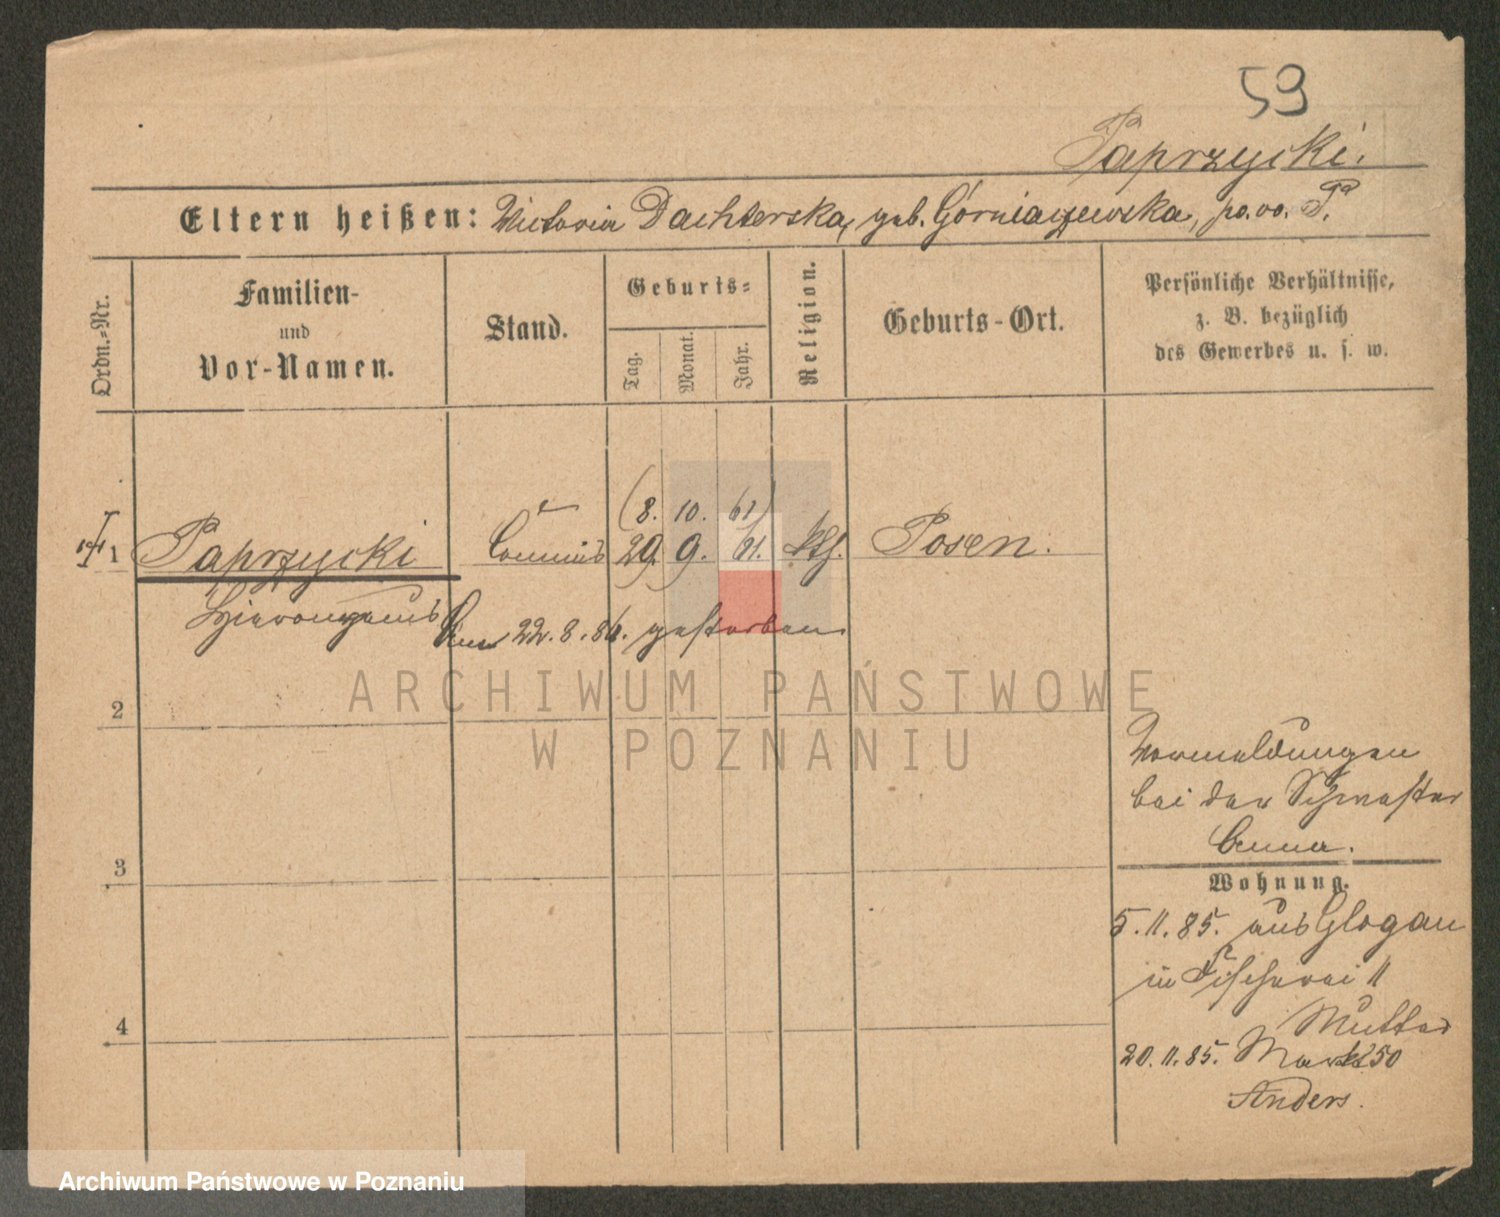 59
Paprzycki.
Eltern heißen: Victoria Dachterska, geb. Górniaczewska, po. vo. P.
Ordn.-Nr.
Familien-
und
Vor-Namen.
Stand.
Geburts-
Tag.
Monat.
Jahr.
Religion.
Geburts-Ort.
Persönliche Verhältnisse,
z. B. bezüglich
des Gewerbes u. s. w.
(8. 10. 61)
1 Paprzycki Commis 29. 9. 61. kth. Posen.
Hieronymus Am 22. 8. 86. gestorben
ARCHIWUM PAŃSTWOWE
W POZNANIU
2
Vormeldungen
bei der Schwester
Anna.
3
Wohnung.
5. 11. 85. aus Glogau
in Fischerei 11
Mutter
4
20. 11. 85. Markt 50
Anders.
Archiwum Państwowe w Poznaniu